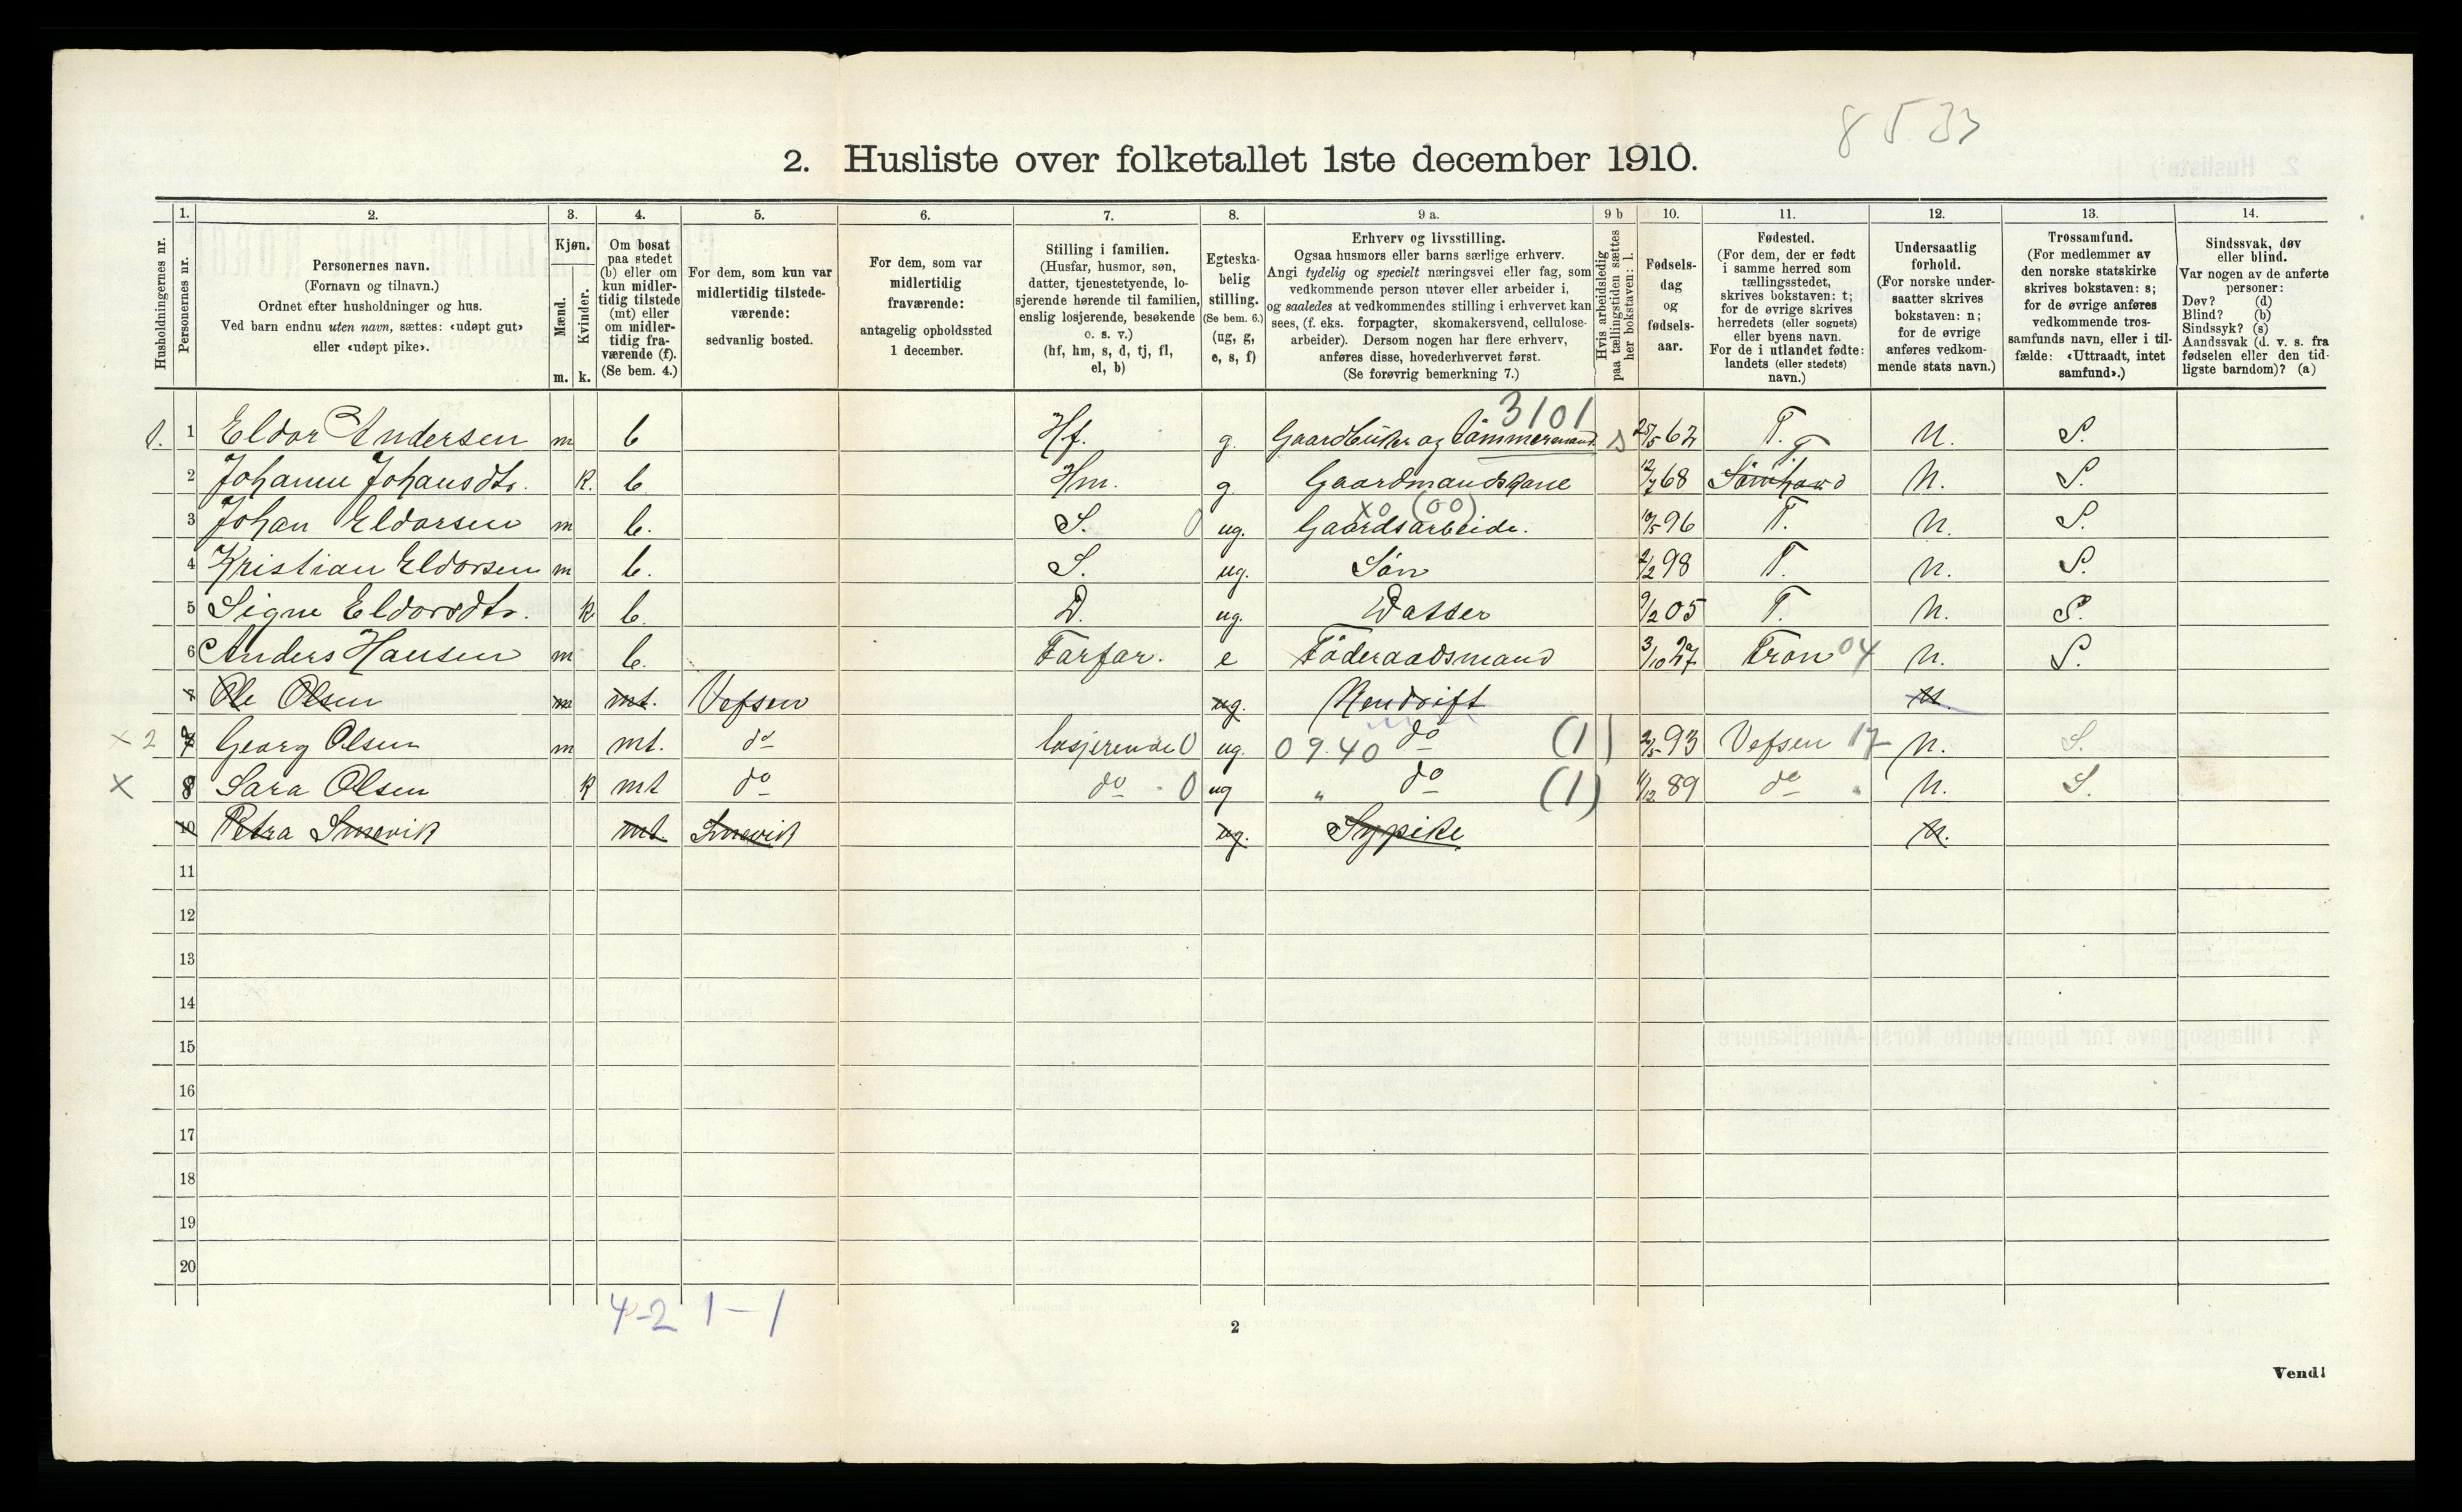 8533
2. Husliste over folketallet 1ste december 1910.
Husholdningernes nr.
1. Personernes nr.
2. Personernes navn. (Fornavn og tilnavn.) Ordnet efter husholdninger og hus. Ved barn endnu uten navn, sættes: «udøpt gut» eller «udøpt pike».
3. Kjøn. Mænd. m. Kvinder. k.
4. Om bosat paa stedet (b) eller om kun midler-tidig tilstede (mt) eller om midler-tidig fra-værende (f). (Se bem. 4.)
5. For dem, som kun var midlertidig tilstede-værende: sedvanlig bosted.
6. For dem, som var midlertidig fraværende: antagelig opholdssted 1 december.
7. Stilling i familien. (Husfar, husmor, søn, datter, tjenestetyende, lo-sjerende hørende til familien, enslig losjerende, besøkende o. s. v.) (hf, hm, s, d, tj, fl, el, b)
8. Egteska-belig stilling. (Se bem. 6.) (ug, g, e, s, f)
9 a. Erhverv og livsstilling. Ogsaa husmors eller barns særlige erhverv. Angi tydelig og specielt næringsvei eller fag, som vedkommende person utøver eller arbeider i, og saaledes at vedkommendes stilling i erhvervet kan sees, (f. eks. forpagter, skomakersvend, cellulose-arbeider). Dersom nogen har flere erhverv, anføres disse, hovederhvervet først. (Se forøvrig bemerkning 7.)
9 b Hvis arbeidsledig paa tællingstiden sættes her bokstaven: l.
10. Fødsels-dag og fødsels-aar.
11. Fødested. (For dem, der er født i samme herred som tællingsstedet, skrives bokstaven: t; for de øvrige skrives herredets (eller sognets) eller byens navn. For de i utlandet fødte: landets (eller stedets) navn.)
12. Undersaatlig forhold. (For norske under-saatter skrives bokstaven: n; for de øvrige anføres vedkom-mende stats navn.)
13. Trossamfund. (For medlemmer av den norske statskirke skrives bokstaven: s; for de øvrige anføres vedkommende tros-samfunds navn, eller i til-fælde: «Uttraadt, intet samfund».)
14. Sindssvak, døv eller blind. Var nogen av de anførte personer: Døv? (d) Blind? (b) Sindssyk? (s) Aandssvak (d. v. s. fra fødselen eller den tid-ligste barndom)? (a)
3101
1. 1 Eldor Andersen m b Hf. g. Gaardbruker og Tømmermand s 25/5 62 T. N. S.
2 Johanne Johansdtr. k. b Hm. g. Gaardmandskone 12/7 68 Sømhovd T. N. S.
X0 (00)
3 Johan Eldorsen m b. S. 0 ug. Gaardsarbeide. 10/5 96 T. N. S.
4 Kristian Eldorsen m b. S. ug. Søn 2/2 98 T. N. S.
5 Signe Eldorsdtr. k b D. ug. Datter 9/2 05 T. N. S.
6 Anders Hansen m b. Farfar. e Føderaadsmand 3/10 27 Tron 04 N. S.
7 Ole Olsen m mt. Vefsen ug. Rendrift N.
x 2 7 Georg Olsen m mt. do losjerende 0 ug. 09.40 do (1) 2/5 93 Vefsen 17 N. S.
x 8 Sara Olsen k mt do do 0 ug " do (1) 4/12 89 do " N. S.
10 Petra Smevik mt. Smevik ug. Sypike N.
11
12
13
14
15
16
17
18
19
20
4-2 1-1
2
Vend!